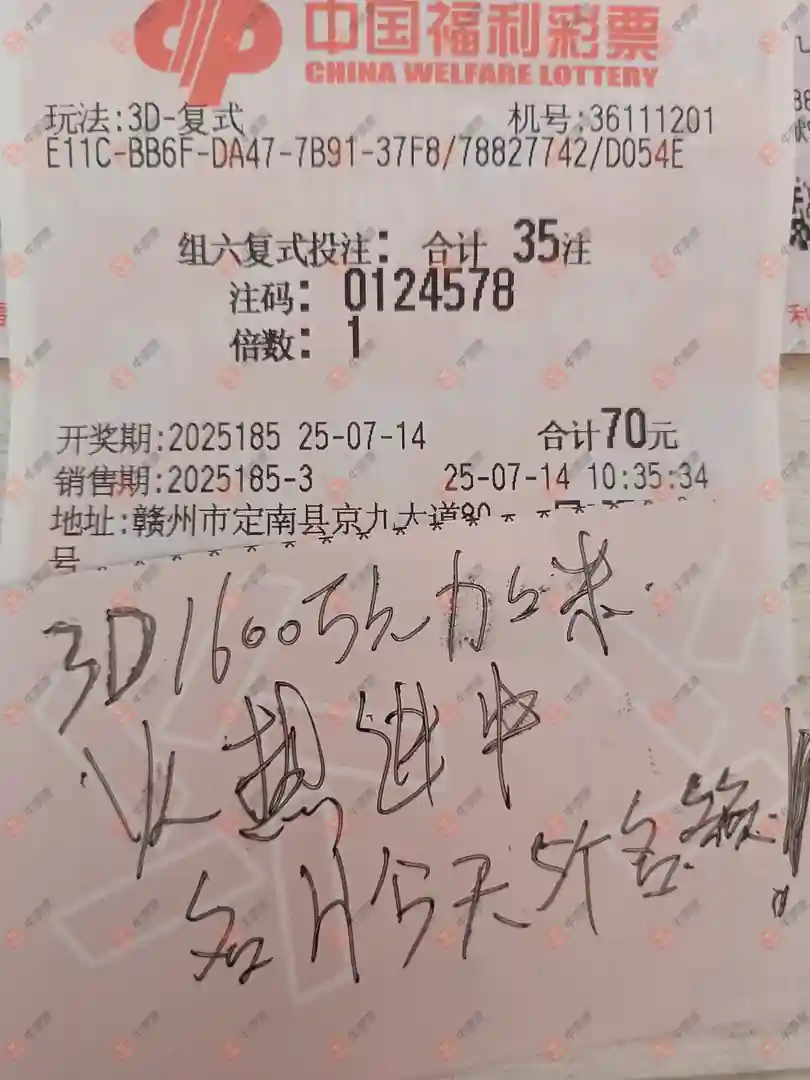 中国福利彩票
CHINA WELFARE LOTTERY
玩法:3D-复式 机号:36111201
E11C-BB6F-DA47-7B91-37F8/78827742/D054E
组六复式投注: 合计 35注
注码: 0124578
倍数: 1
开奖期:2025185 25-07-14 合计70元
销售期:2025185-3 25-07-14 10:35:34
地址:赣州市定南县京九大道
号
3D1600万元加
火热进中
名片今天5个名额!!